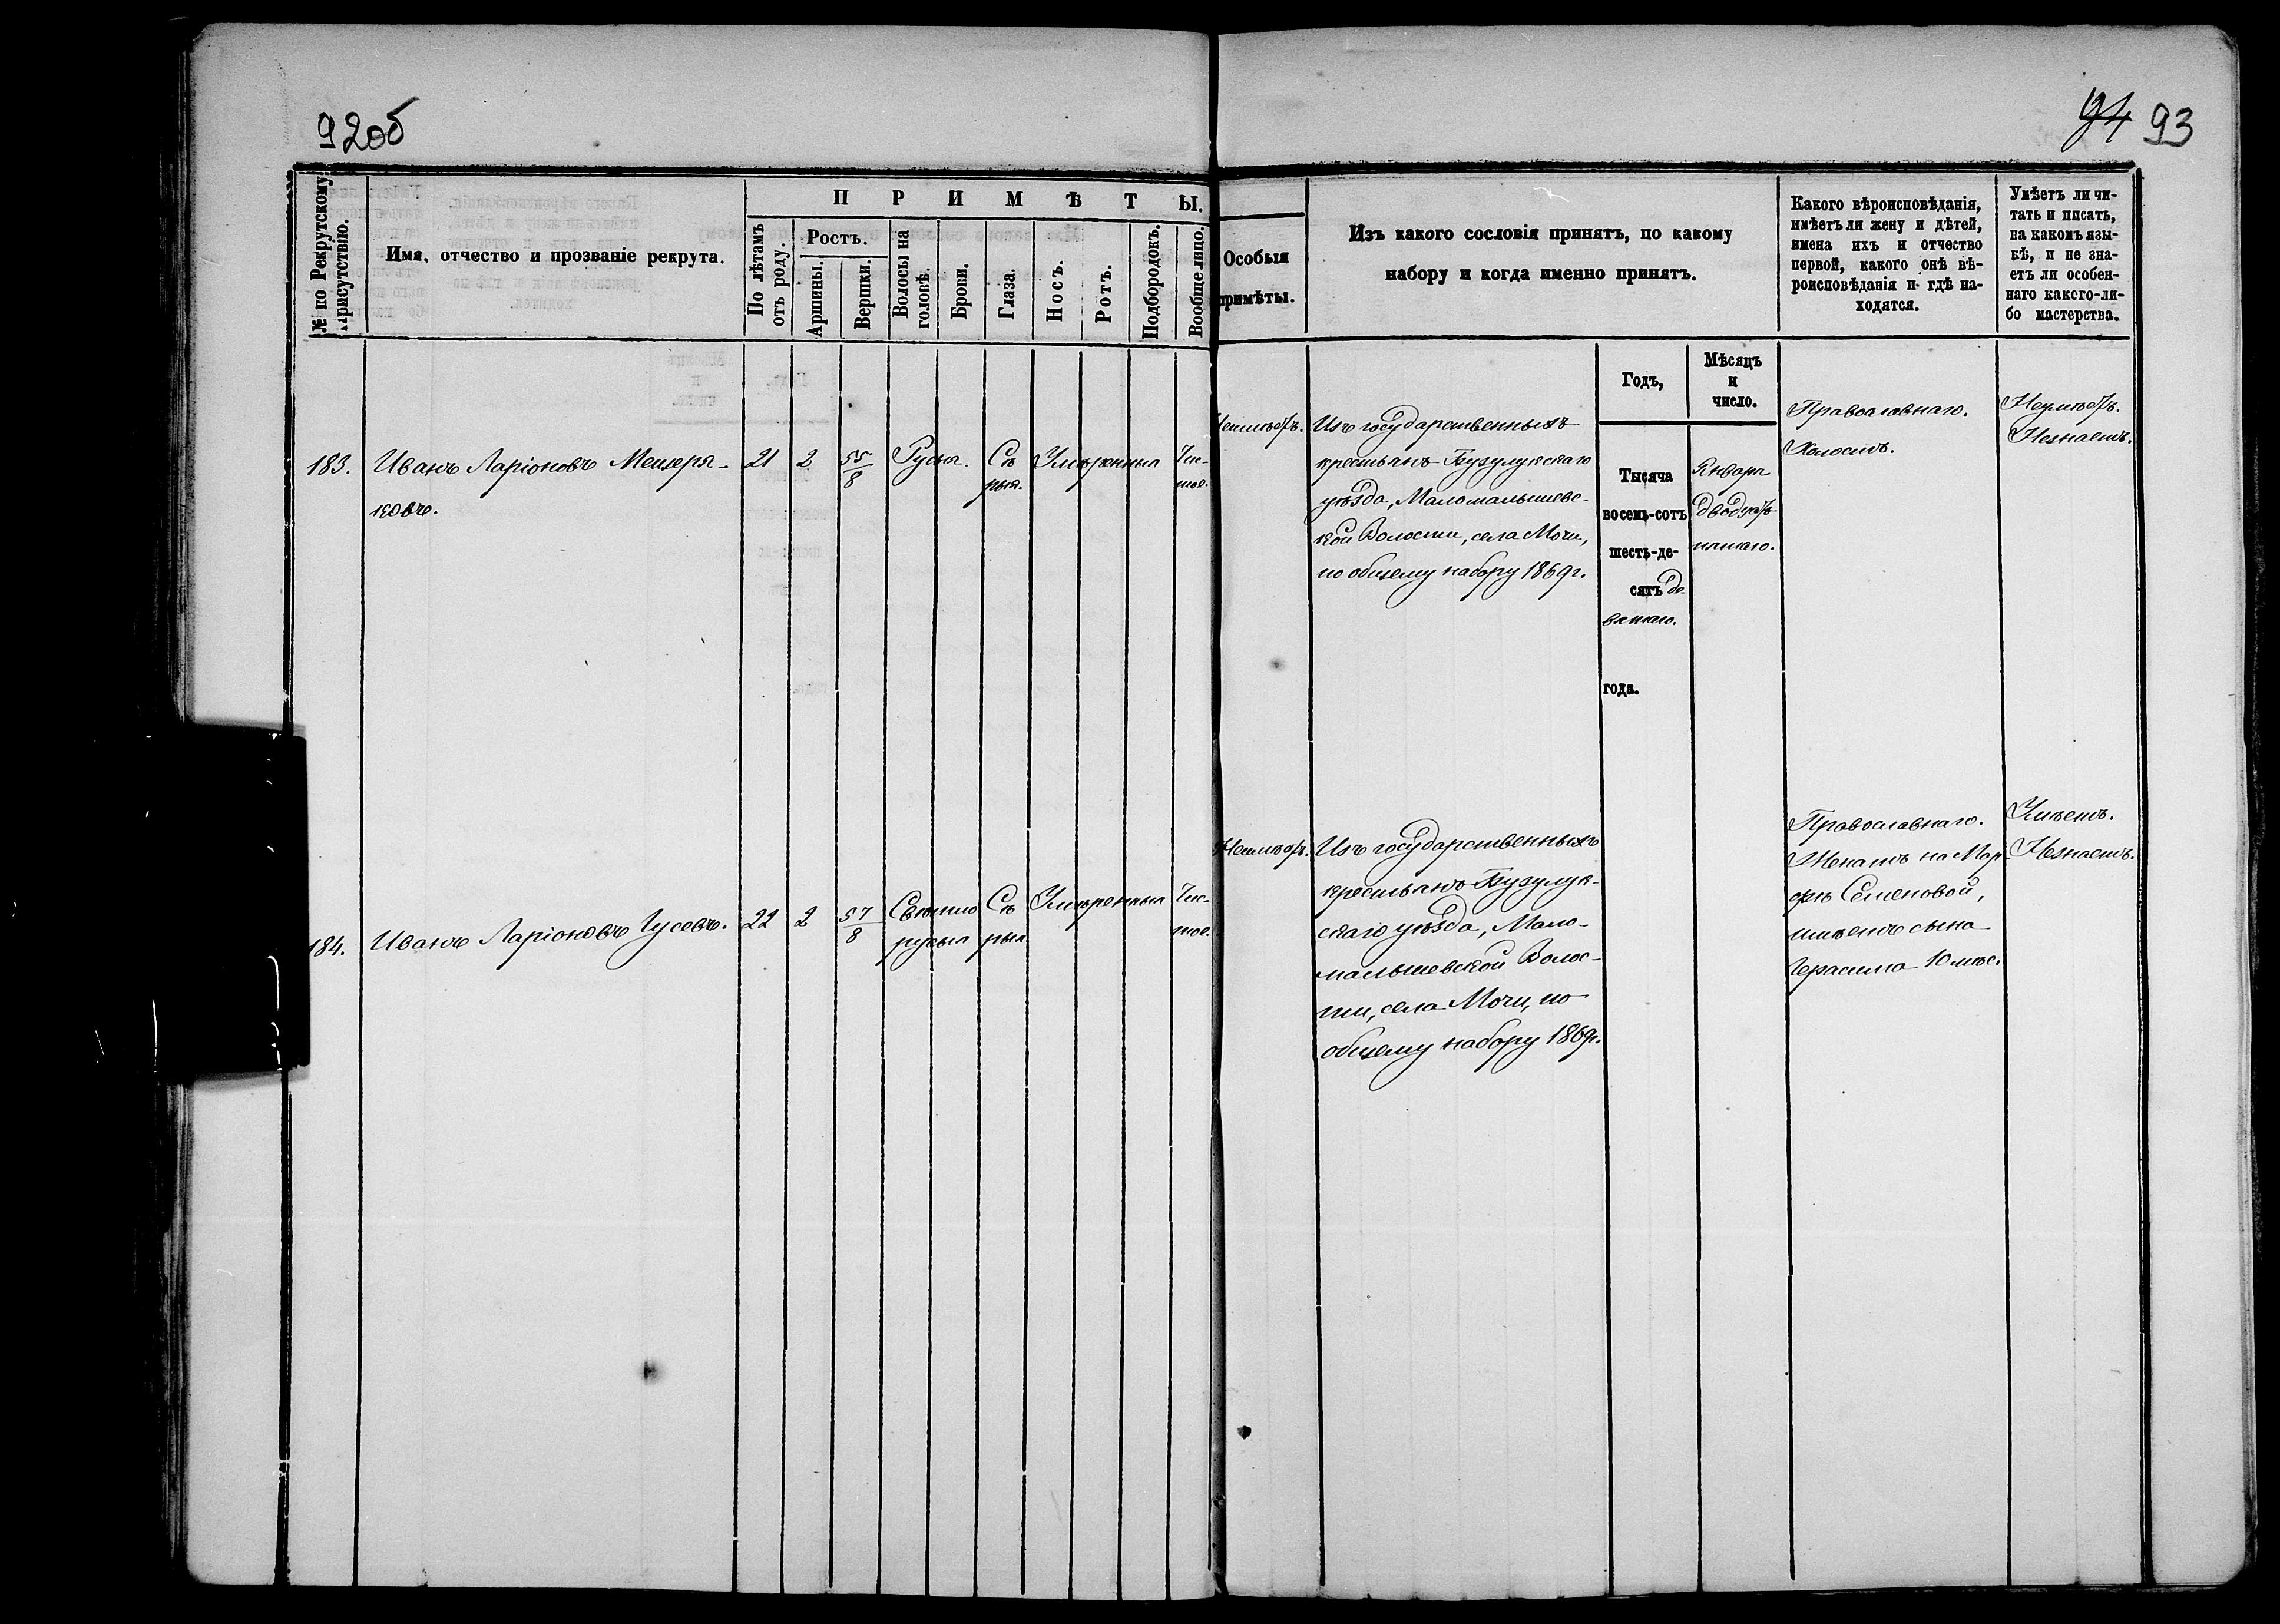 92об
94 93
№ по Рекрутскому Присутствію.
Имя, отчество и прозваніе рекрута.
ПРИМѢТЫ.
По лѣтамъ отъ роду.
Ростъ.
Аршины.
Вершки.
Волосы на головѣ.
Брови.
Глаза.
Носъ.
Ротъ.
Подбородокъ.
Вообще лицо.
Особыя
примѣты.
Изъ какого сословія принятъ, по какому
набору и когда именно принятъ.
Какого вѣроисповѣданія,
имѣетъ ли жену и дѣтей,
имена ихъ и отчество
первой, какого онѣ вѣ-
роисповѣданія и гдѣ на-
ходятся.
Умѣетъ ли чи-
тать и писать,
на какомъ язы-
кѣ, и не зна-
етъ ли особен-
наго какого-ли-
бо мастерства.
Годъ,
Мѣсяцъ
и
число.
183. Иванъ Ларіоновъ Мещеря-
ковъ.
21 2 5 5/8 Русыя. Сѣ Умѣренныя Чис-
рыя. тое.
Неимѣетъ.
Изъ государственныхъ
крестьянъ Бузулукскаго
уѣзда, Маломалышевс-
кой Волости, села Мочи,
по общему набору 1869 г.
Тысяча
восемь-сотъ
шесть-де-
сятъ де-
вятаго.
года.
Января
двадцать
пятаго.
Православнаго.
Холостъ.
Неумѣетъ.
Незнаетъ.
184. Иванъ Ларіоновъ Гусевъ.
22 2 5 7/8 Свѣтло Сѣ Умѣренныя Чис-
русыя рыя тое.
Неимѣетъ.
Изъ государственныхъ
крестьянъ Бузулук-
скаго уѣзда, Мало-
малышевской Волос-
ти, села Мочи, по
общему набору 1869 г.
Православнаго.
Женатъ на Мар-
фѣ Семеновой,
имѣетъ сына
Герасима 10 мѣс.
Умѣетъ.
Незнаетъ.